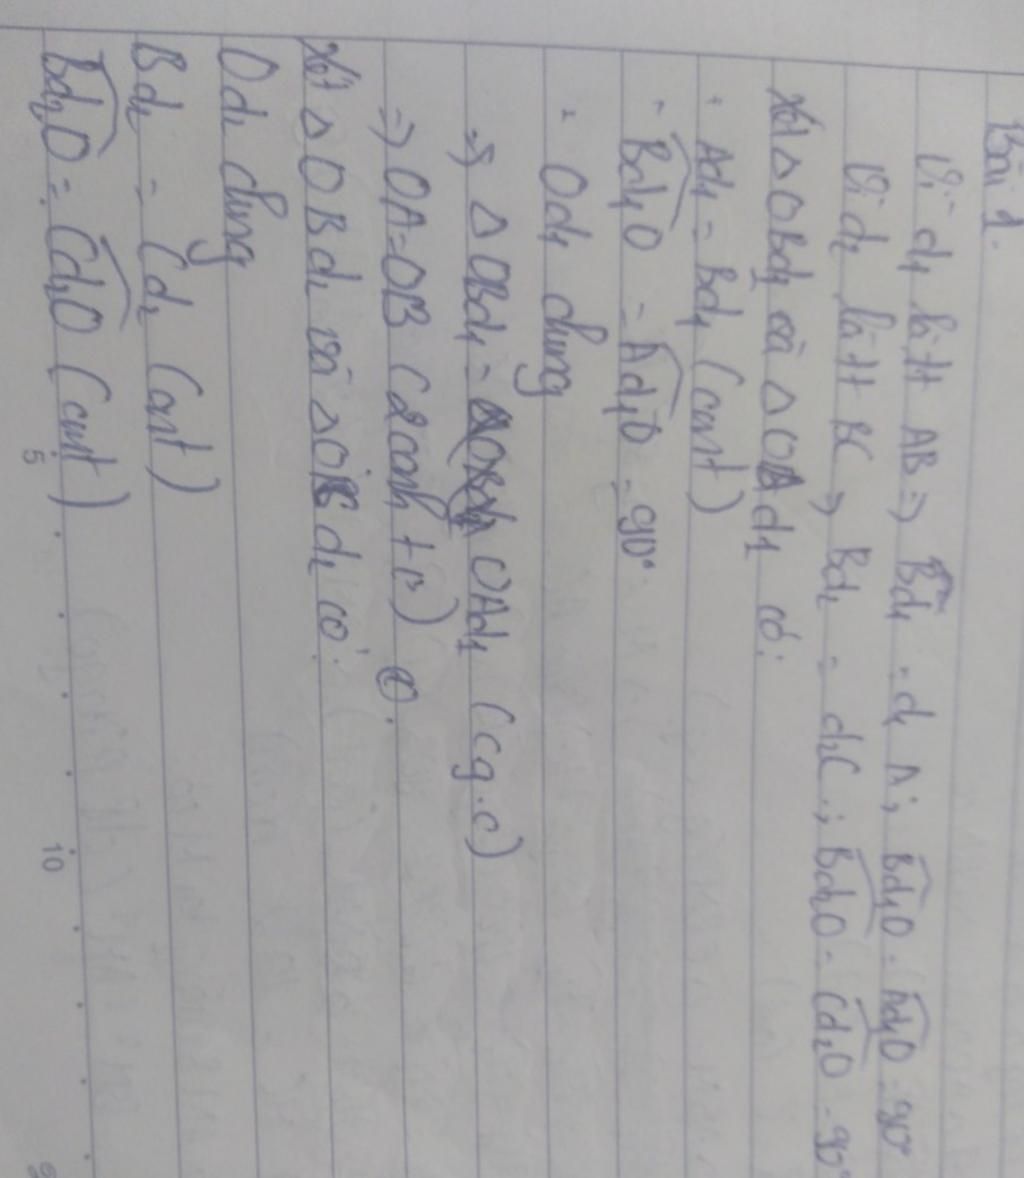 Bài 1.
Vì d₁ là tt AB => Bd₁ = d₁A; Bd₁O = Ad₁O = 90°
Vì d₂ là tt BC => Bd₂ = d₂C; Bd₂O = Cd₂O = 90°
Xét △OBd₁ và △OAd₁ có:
· Ad₁ = Bd₁ (cmt)
- Bd₁O = Ad₁O = 90°
- Od₁ chung
=> △OBd₁ = OAd₁ (cg.c)
=> OA=OB (2 cạnh t c) ①.
Xét △OBd₂ và △OCd₂ có:
Od₂ chung
Bd₂ = Cd₂ (cmt)
Bd₂O = Cd₂O (cmt)
5
10